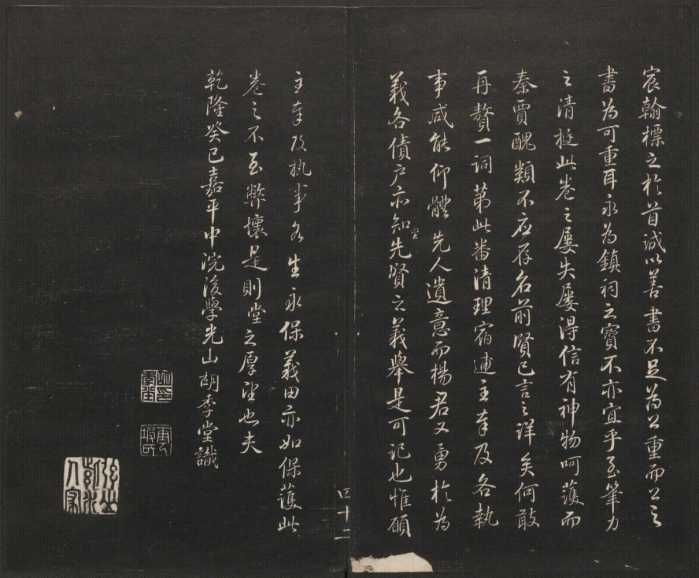 宸翰標之於首誠以善書不足為公重而公之
書為可重耳永為鎮祠之寶不亦宜乎至筆力
之清挺此卷之屢失屢得信有神物呵護而
秦賈醜類不應存名前賢已言之詳矣何敢
再贅一詞第此番清理宿逋主奉及各執
事咸能仰體先人遺意而楊君又勇於為
義各債戶亦知先賢之義舉是可記也惟願
堂
主奉及執事各生永保義田亦如保護此
卷之不至弊壞是則堂之厚望也夫
乾隆癸巳嘉平中浣後學光山胡季堂識
四十二